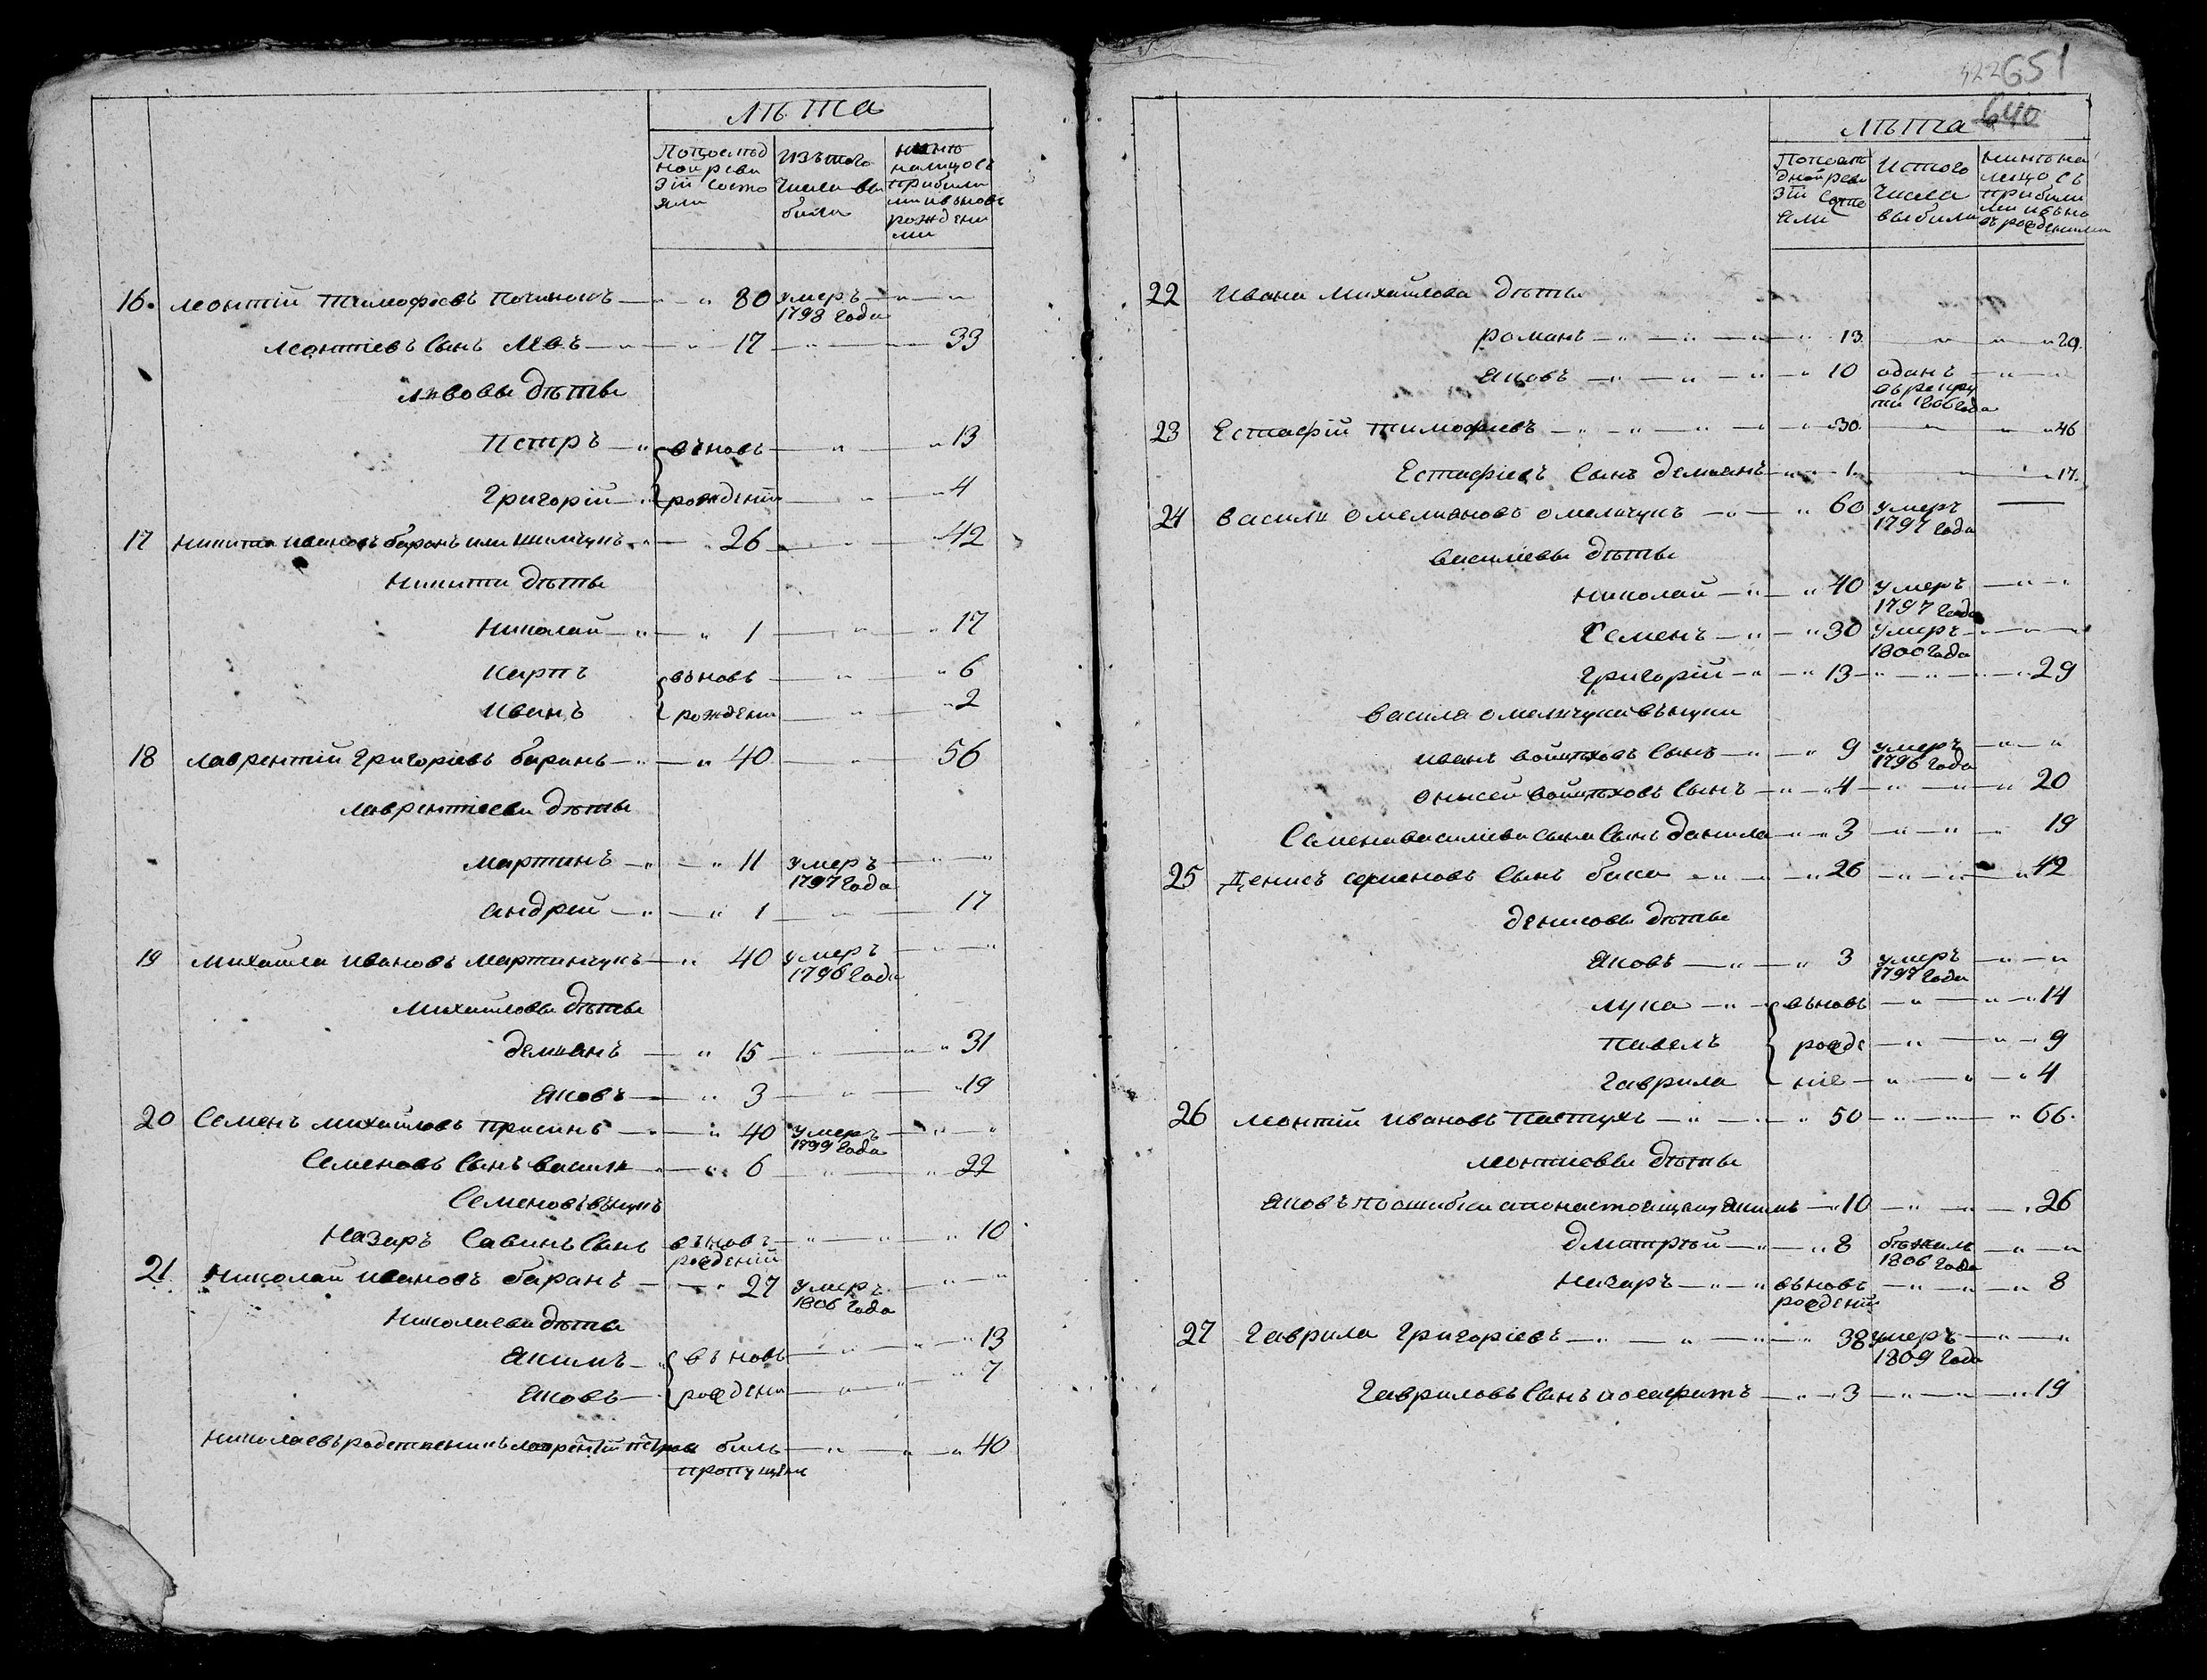 лѣта
Попослѣд изътого нынѣ
ной реви числа вы налицо съ
зіи состо были прибыли
яли ми ивьновь
рождени
ми
16. леонтій тимофѣевъ починокъ 80 умеръ
1798 года
леонтіевъ сынъ левъ 17 33
львовы дѣты
петръ вьновь 13
григорій рождений 4
17 никита ивановъ баранъ или 26 42
никити дѣты
николай 1 17
карпъ вьновь 6
иванъ рождени 2
18 лаврентій григоріевъ баранъ 40 56
лаврентіеви дѣты
мартинъ 11 умеръ
1797 года
андрей 1 17
19 михайла ивановъ мартинчукъ 40 умеръ
1796 года
михайловы дѣты
демянъ 15 31
яковъ 3 19
20 Семенъ михайловъ 40 умеръ
1799 года
Семеновъ сынъ василь 6 22
Семеновъ вънукъ
назаръ савинъ сынъ вьновь 10
рожденій
21. николай ивановъ баранъ 27 умеръ
1806 года
николаеви дѣты
якимъ вьновь 13
яковъ рождени 7
николаевъ родственикъ лаврентій биль 40
пропущенъ
422 651
640
лѣта
Попослѣ истого нинѣ на
дной реви числа лицо съ
зіи состо выбили прибыли
яли ми ивьно
въ рожденими
22 Ивана михайлова дѣты
романъ 13. 29.
яковъ 10 оданъ
въ рекру
ти 1806 года
23 Естафій тимофіевъ 30. 46
Естафіевъ сынъ демянъ 1. 17.
24 василь омеляновъ омелчукъ 60 умеръ
1797 года
василіевы дѣты
николай 40 умеръ
1797 года
Семенъ 30 умеръ
1800 года
григорій 13 29
василя омелчука вънуки
иванъ войтѣховъ сынъ 9 умеръ
1796 года
онисей войтѣховъ сынъ 4 20
Семена василіева сына сынъ данила 3 19
25 денисъ семеновъ сынъ бака 26 42
денисовы дѣты
яковъ 3 умеръ
1797 года
лука вьновь 14
павелъ рожде 9
гаврила ніе 4
26 леонтій ивановъ пастухъ 50 66.
леонтіевы дѣты
яковъ по ошибки а понастоящему якимъ 10 26
дмитрий 8 бѣжалъ
1806 года
назаръ вьновь 8
рождений
27 гаврила григоріевъ 38 умеръ
1809 года
гавриловъ сынъ иосафатъ 3 19